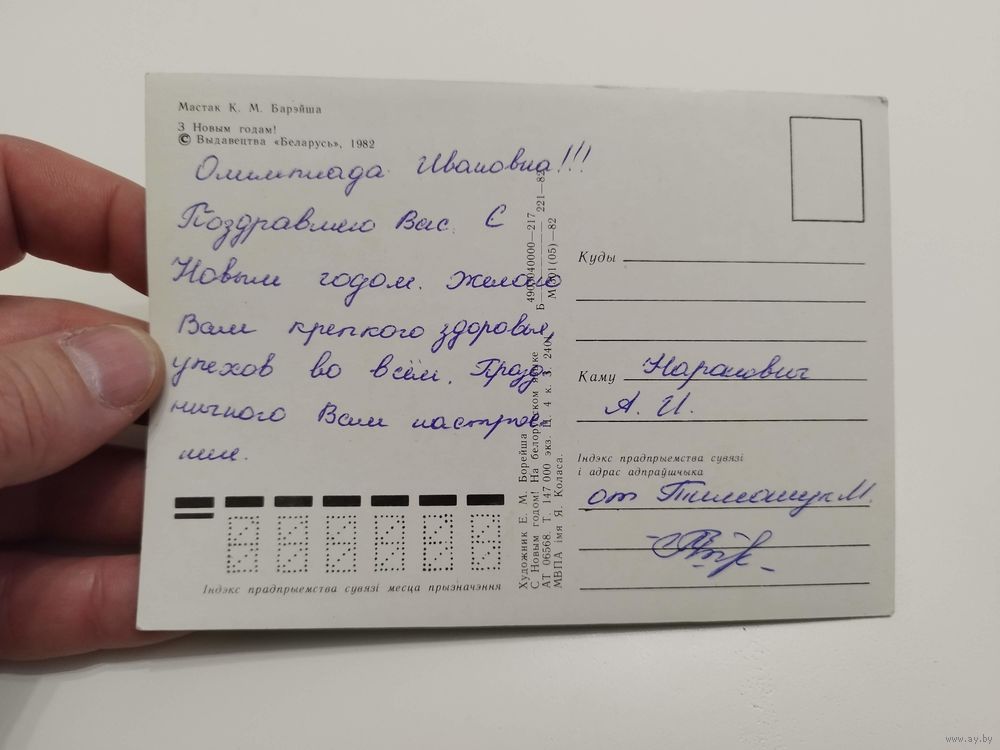 Мастак К. М. Барэйша
З Новым годам!
© Выдавецтва «Беларусь», 1982
Олимпиада Ивановна!!!
Поздравляю Вас. С
Новым годом. Желаю
Вам крепкого здоровья,
успехов во всём. Празд
ничного Вам настрое
ния.
Індэкс прадпрыемства сувязі месца прызначэння
Художник Е. М. Борейша
С Новым годом! На белорусском языке
АТ 06568. Т. 147 000 экз. 4 к. З. 2401
МВПА імя Я. Коласа.
Б 4903040000—217 221—82
М301(05)—82
Куды
Каму Наранович
А. И.
Індэкс прадпрыемства сувязі
і адрас адпраўшчыка
от Тимощук М.
www.ay.by